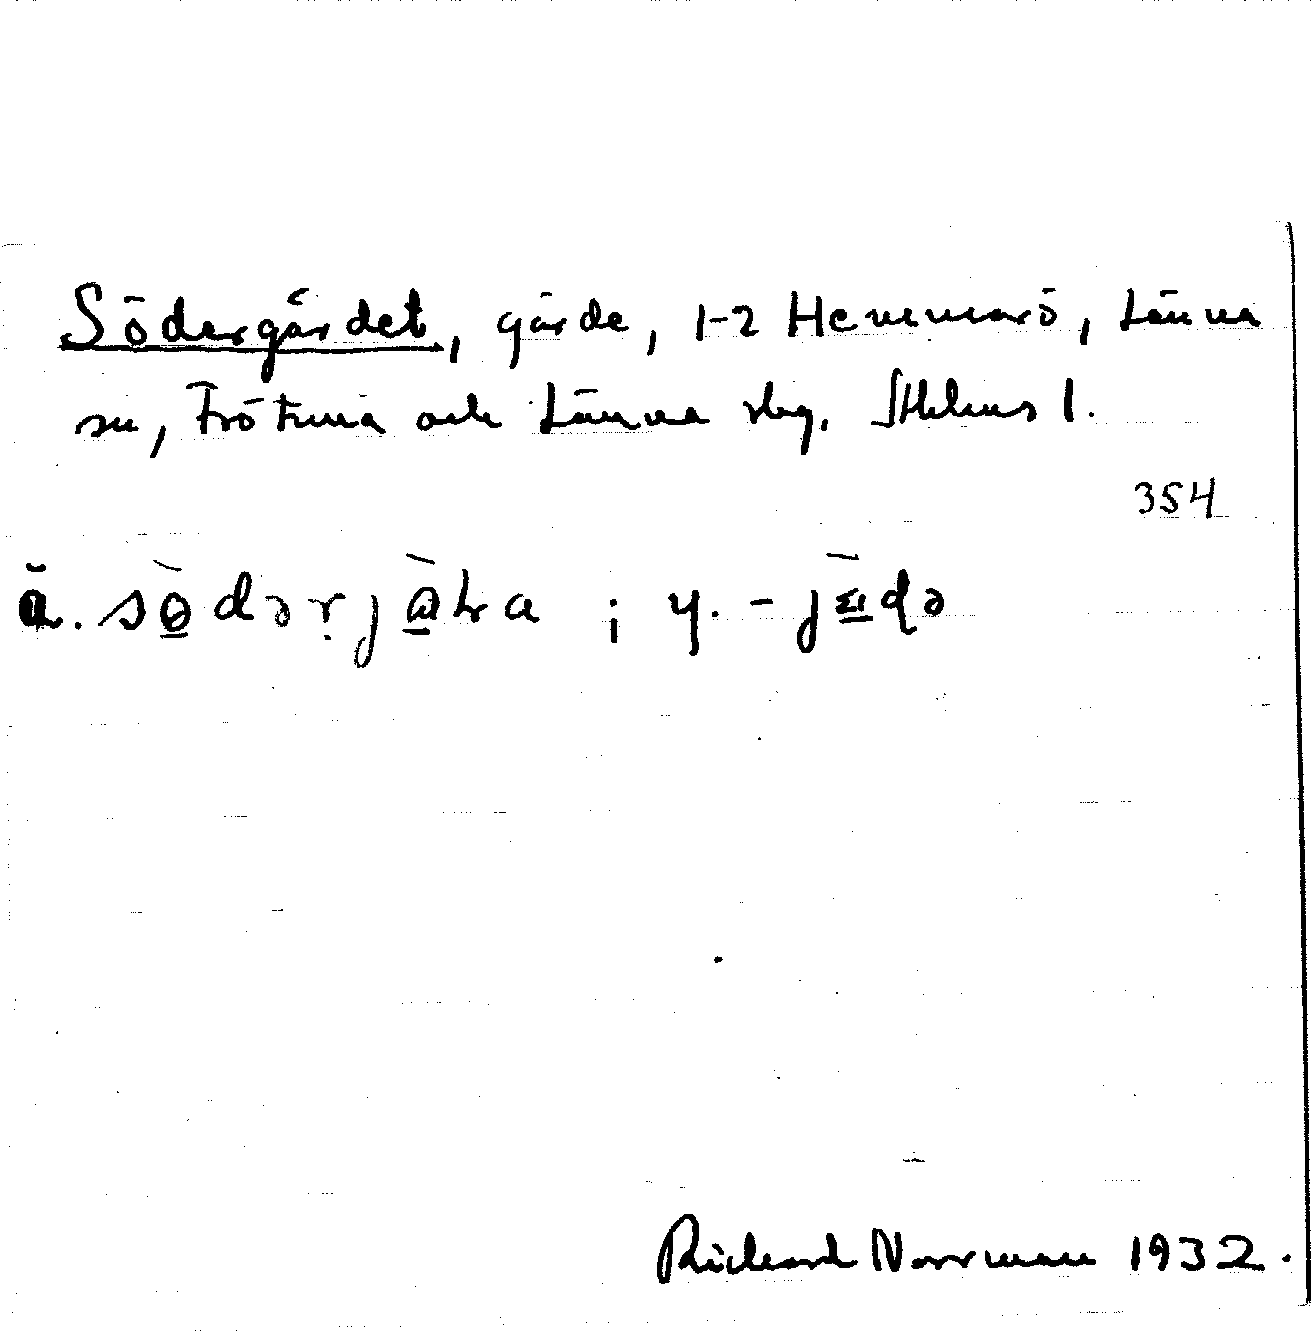 Södergärdet, gärde, 1-2 Hemmarö, Länna
sn, Frötuna och Länna slg. Sthlms l.
354
ä. södərj
; y. -
Richard Norrman 1932.